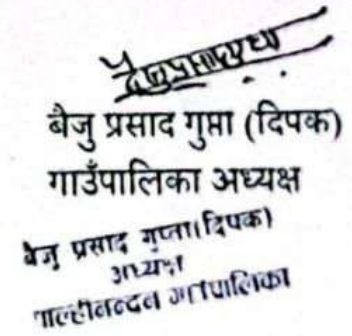 बैजु प्रसाद गुप्ता
बैजु प्रसाद गुप्ता (दिपक)
गाउँपालिका अध्यक्ष
बैजु प्रसाद गुप्ता (दिपक)
अध्यक्ष
पाल्हीनन्दन गाउँपालिका